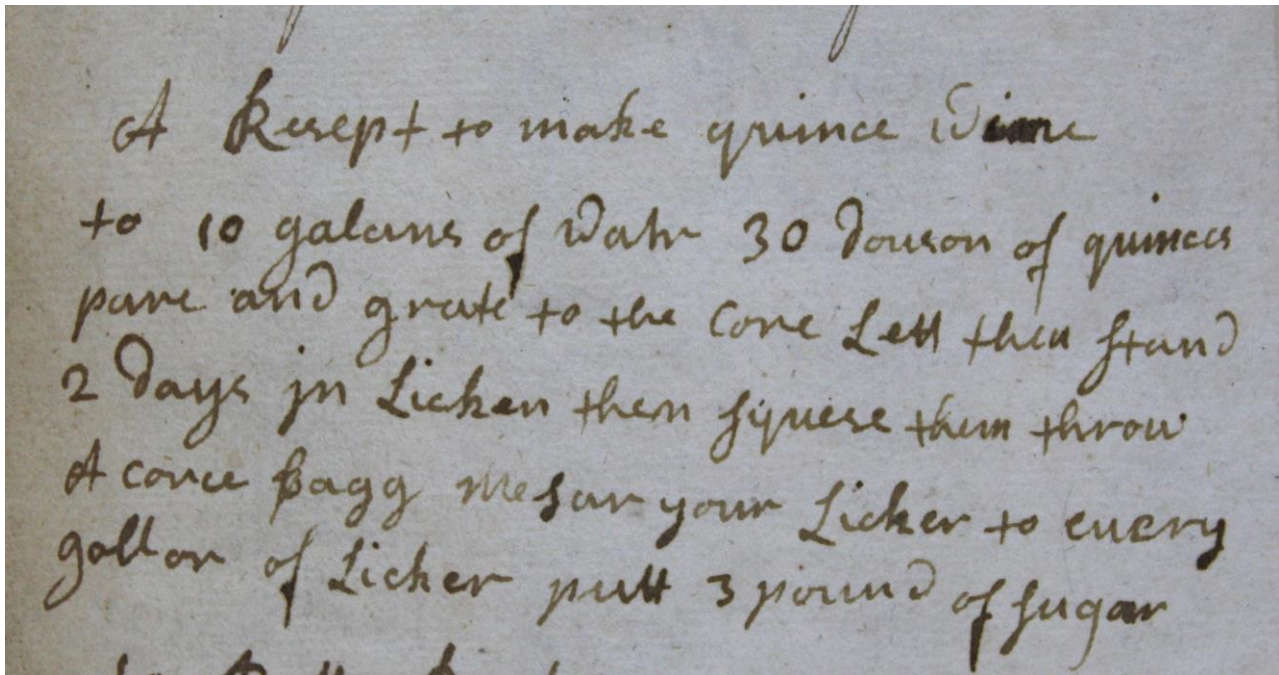 A Resept to make quince Wine
to 10 galans of Watr 30 douson of quinces
pare and grate to the Core Lett then stand
2 days jn Licken then squese them throw
A corce bagg Mesur your Licker to euery
gollon of Licker putt 3 pound of sugar